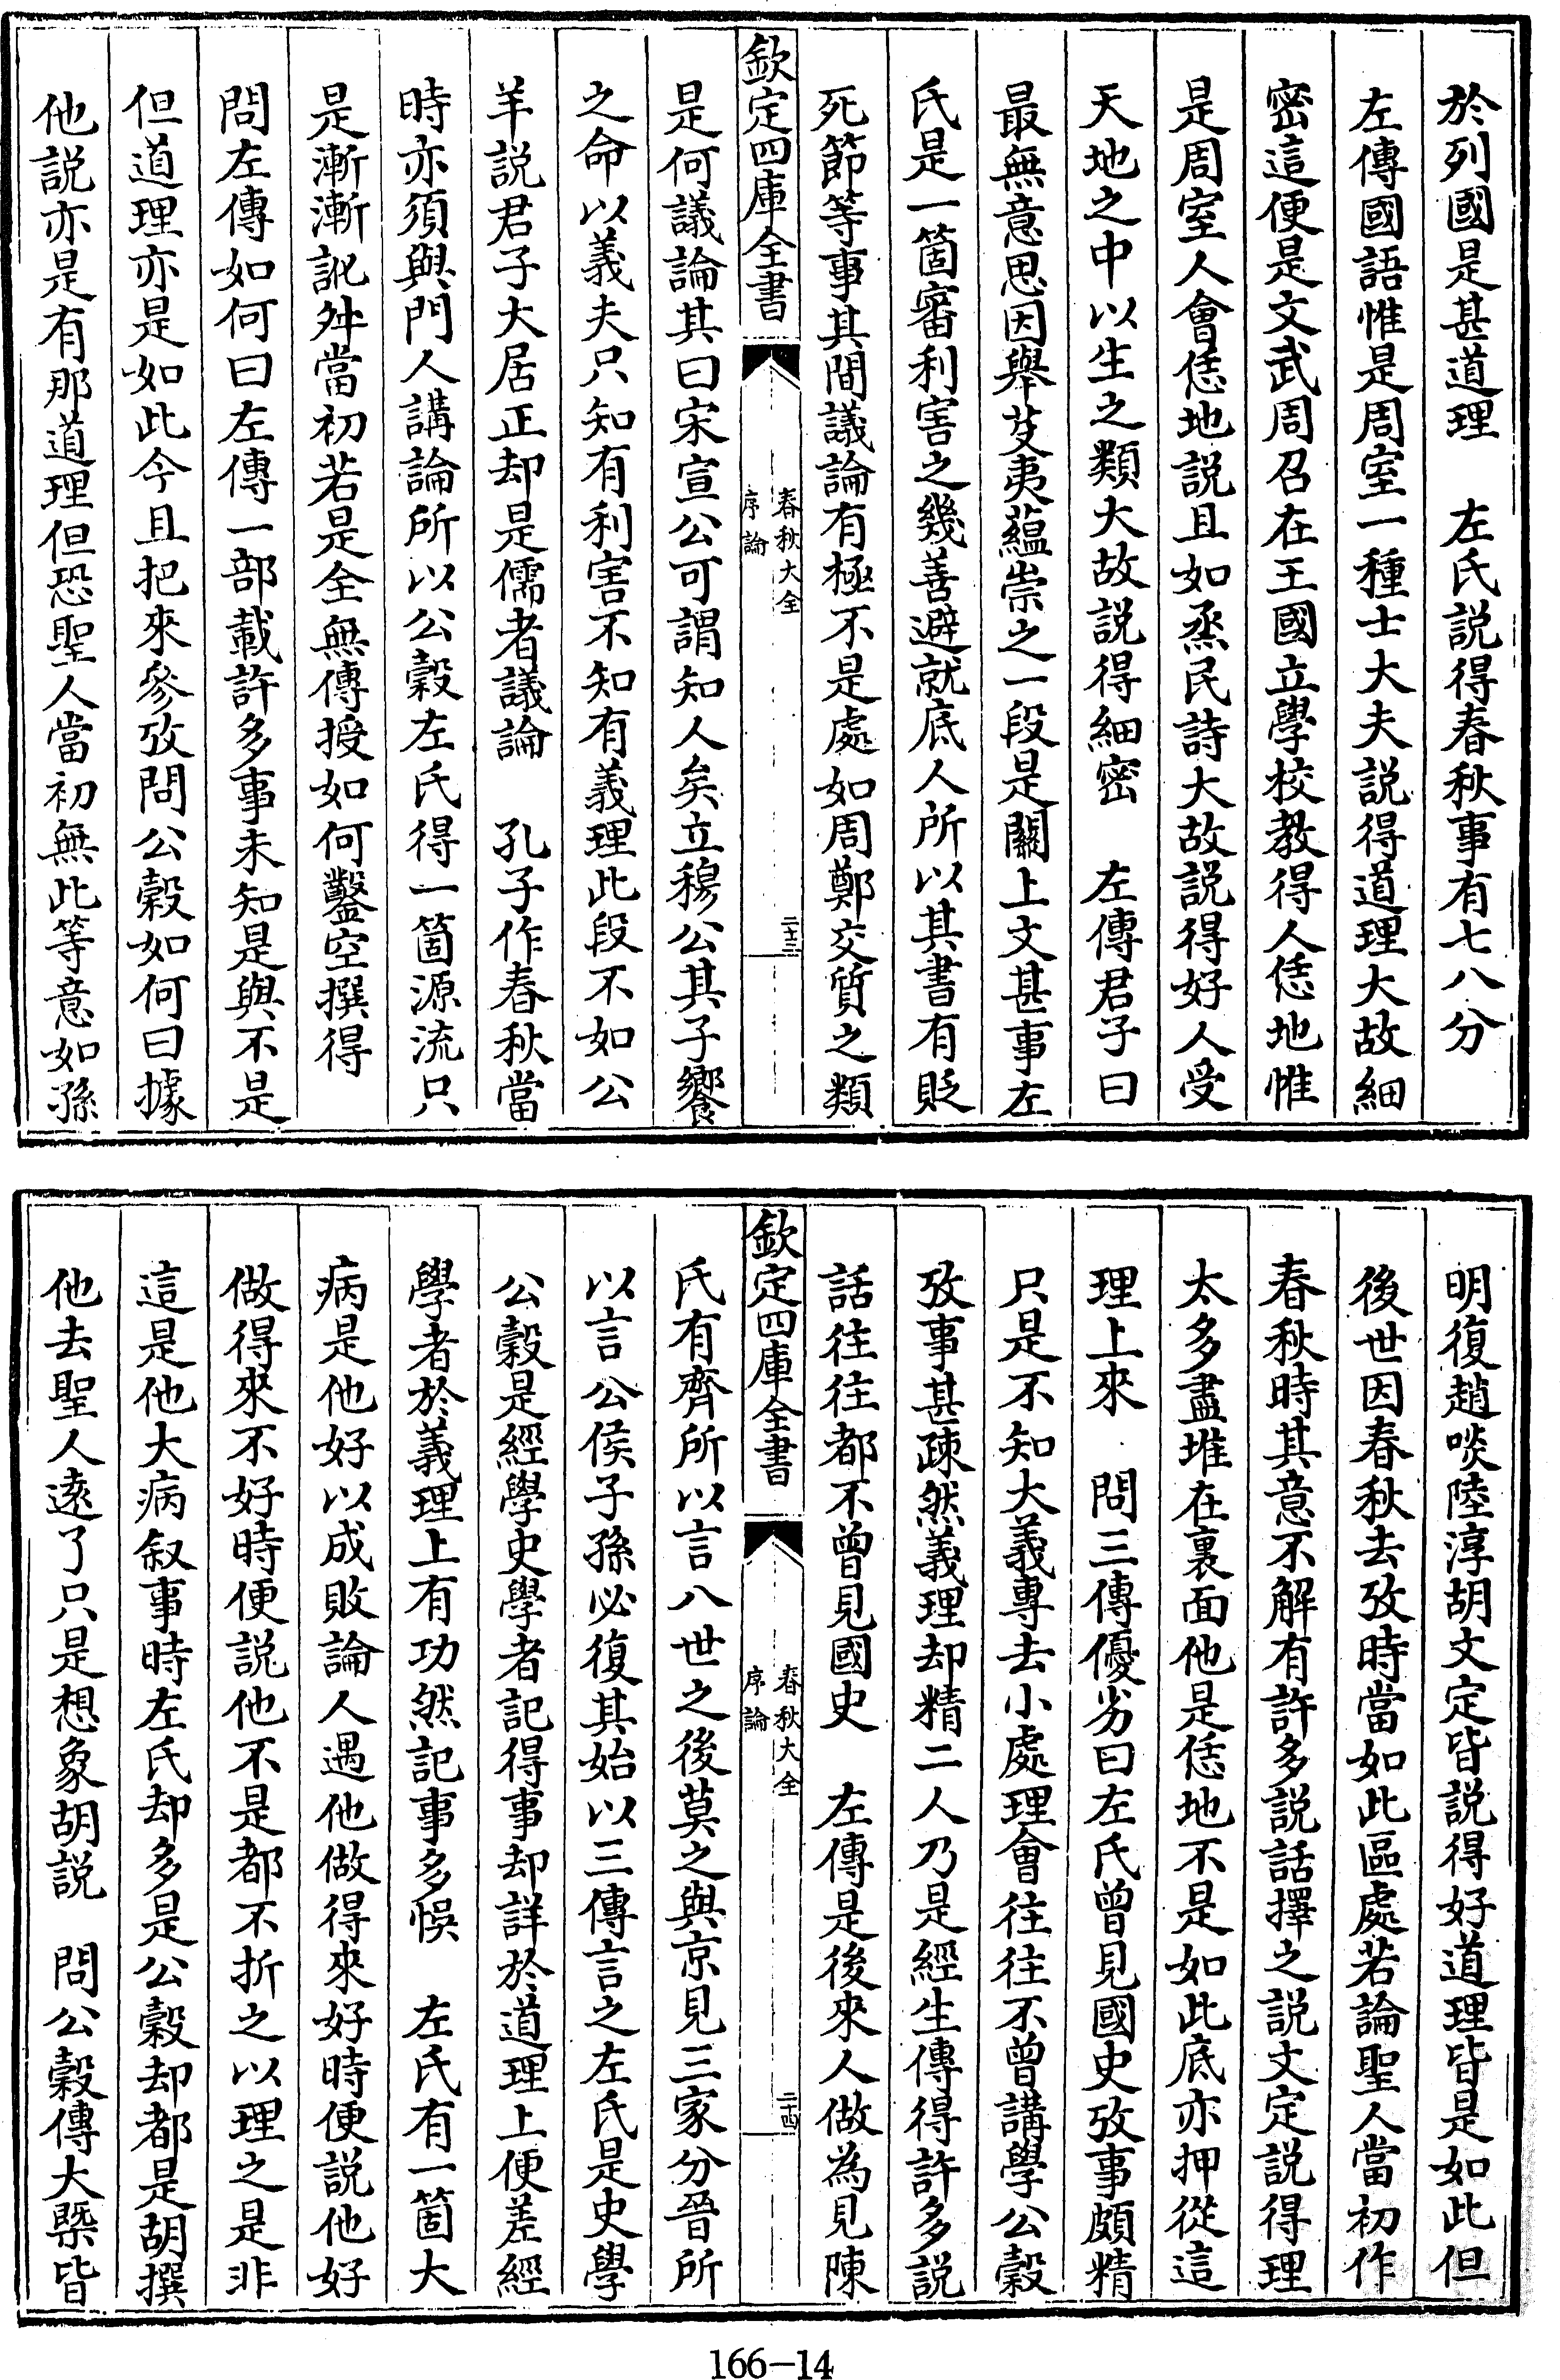 於列國是甚道理　左氏説得春秋事有七八分
左傳國語惟是周室一種士大夫説得道理大故細
密這便是文武周召在王國立學校教得人恁地惟
是周室人㑹恁地説且如烝民詩大故説得好人受
天地之中以生之類大故説得細密　左傳君子曰
最無意思因舉芟夷蘊崇之一段是關上文甚事左
氏是一箇審利害之幾善避就底人所以其書有貶
死節等事其間議論有極不是處如周鄭交質之類
欽定四庫全書
春秋大全
序論
二十三
是何議論其曰宋宣公可謂知人矣立穆公其子饗
之命以義夫只知有利害不知有義理此段不如公
羊説君子大居正却是儒者議論　孔子作春秋當
時亦須與門人講論所以公穀左氏得一箇源流只
是漸漸訛舛當初若是全無傳授如何鑿空撰得
問左傳如何曰左傳一部載許多事未知是與不是
但道理亦是如此今且把來參攷問公穀如何曰據
他説亦是有那道理但恐聖人當初無此等意如孫
明復趙啖陸淳胡文定皆説得好道理皆是如此但
後世因春秋去攷時當如此區處若論聖人當初作
春秋時其意不解有許多説話擇之説文定説得理
太多盡堆在裏面他是恁地不是如此底亦押從這
理上來　問三傳優劣曰左氏曾見國史攷事頗精
只是不知大義專去小處理㑹往往不曾講學公穀
攷事甚疎然義理却精二人乃是經生傳得許多説
話往往都不曾見國史　左傳是後來人做為見陳
欽定四庫全書
春秋大全
序論
二十四
氏有齊所以言八世之後莫之與京見三家分晉所
以言公侯子孫必復其始以三傳言之左氏是史學
公穀是經學史學者記得事却詳於道理上便差經
學者於義理上有功然記事多悞　左氏有一箇大
病是他好以成敗論人遇他做得來好時便説他好
做得來不好時便説他不是都不折之以理之是非
這是他大病叙事時左氏却多是公穀却都是胡撰
他去聖人遠了只是想象胡説　問公穀傳大槩皆
166-14